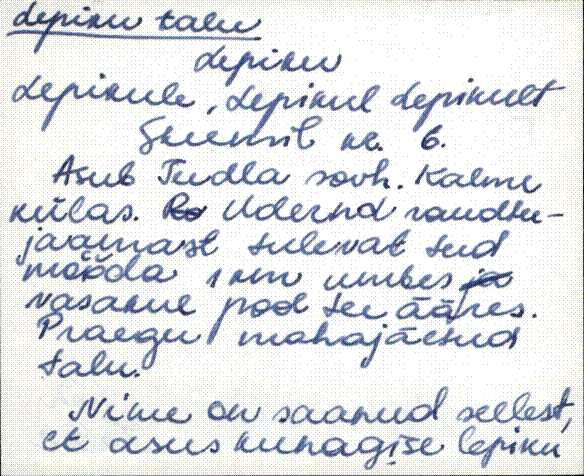 Lepiku talu
Lepiku
Lepikule, Lepikul Lepikult
Skeemil nr. 6.
Asub Tudla sovh. Kalme
külas. Udernd raudtu-
jaamast tulevat teed
mööda 1 km umbes
vasakul pool tee ääres.
Praegu mahajäetud
talu.
Nime on saanud sellest,
et asus kunagise lepiku